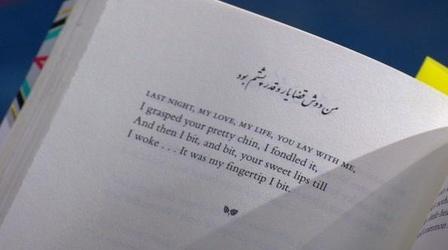 من دوش قضا یار و قدر پشتم بود
LAST NIGHT, MY LOVE, MY LIFE, YOU LAY WITH ME,
I grasped your pretty chin, I fondled it,
And then I bit, and bit, your sweet lips till
I woke . . . It was my fingertip I bit.